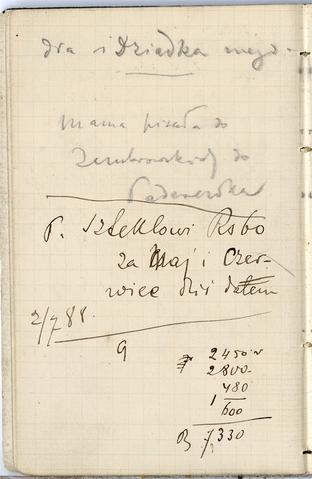 dra i Dziadka mojd
Mama pisała do
Zembrowskich do
Paderewska
P. Sztekłowi Rsbo
za Maj i Czer-
wiec dziś dałem
2/7 88.
9
2450
2800
480
1
600
R 7330